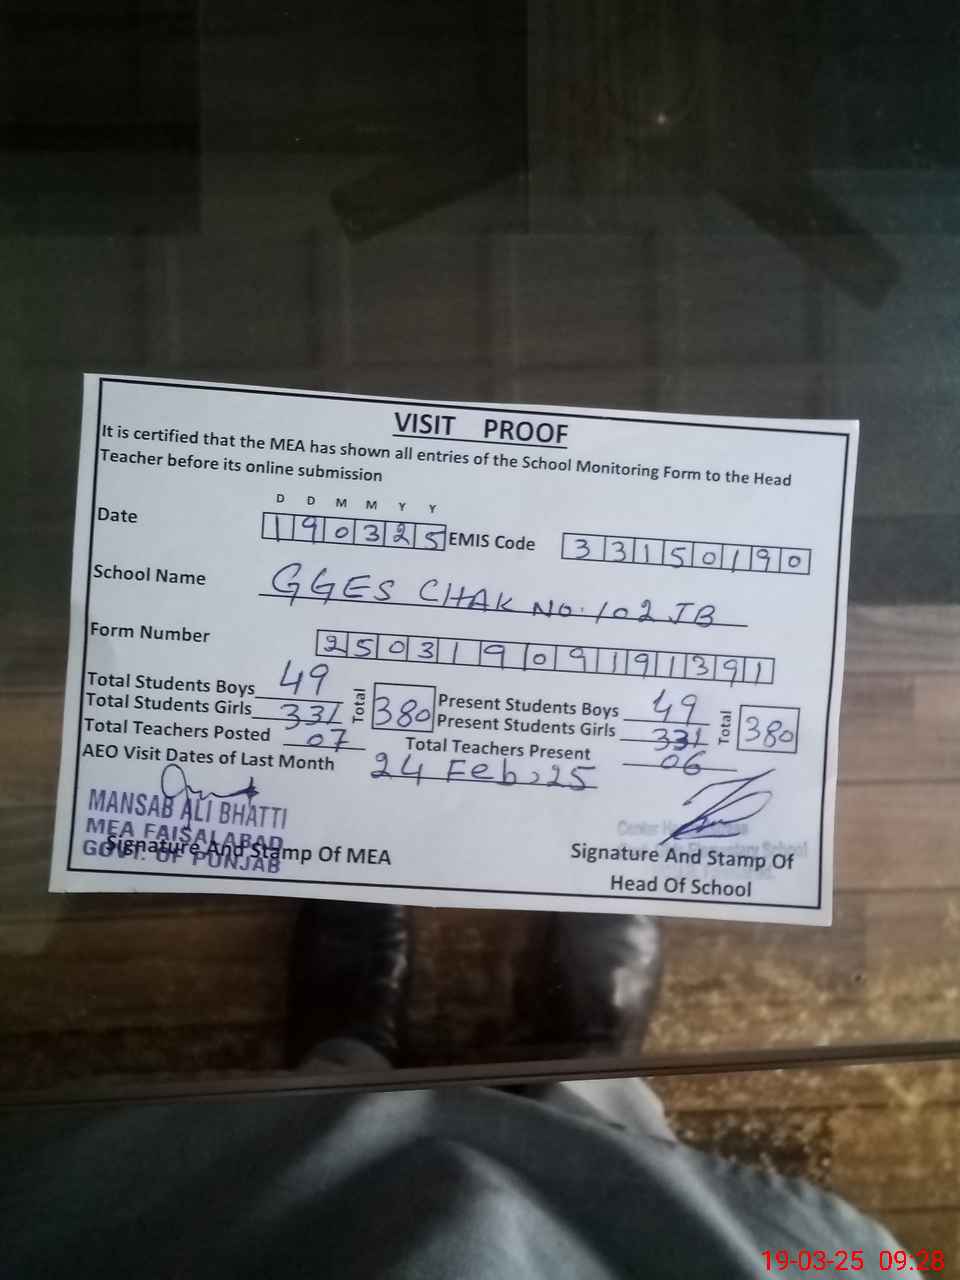 VISIT PROOF
It is certified that the MEA has shown all entries of the School Monitoring Form to the Head
Teacher before its online submission
D D M M Y Y
Date 190325 EMIS Code 33150190
School Name GGES CHAK NO. 102 JB
Form Number 25031909191391
Total Students Boys 49 Total 380 Present Students Boys 49 Total 380
Total Students Girls 331 Present Students Girls 331
Total Teachers Posted 07 Total Teachers Present 06
AEO Visit Dates of Last Month 24 Feb, 25
MANSAB ALI BHATTI
MEA FAISALABAD
GOVT. OF PUNJAB
Signature And Stamp Of MEA
Elementary School
Signature And Stamp Of
Head Of School
19-03-25 09:28